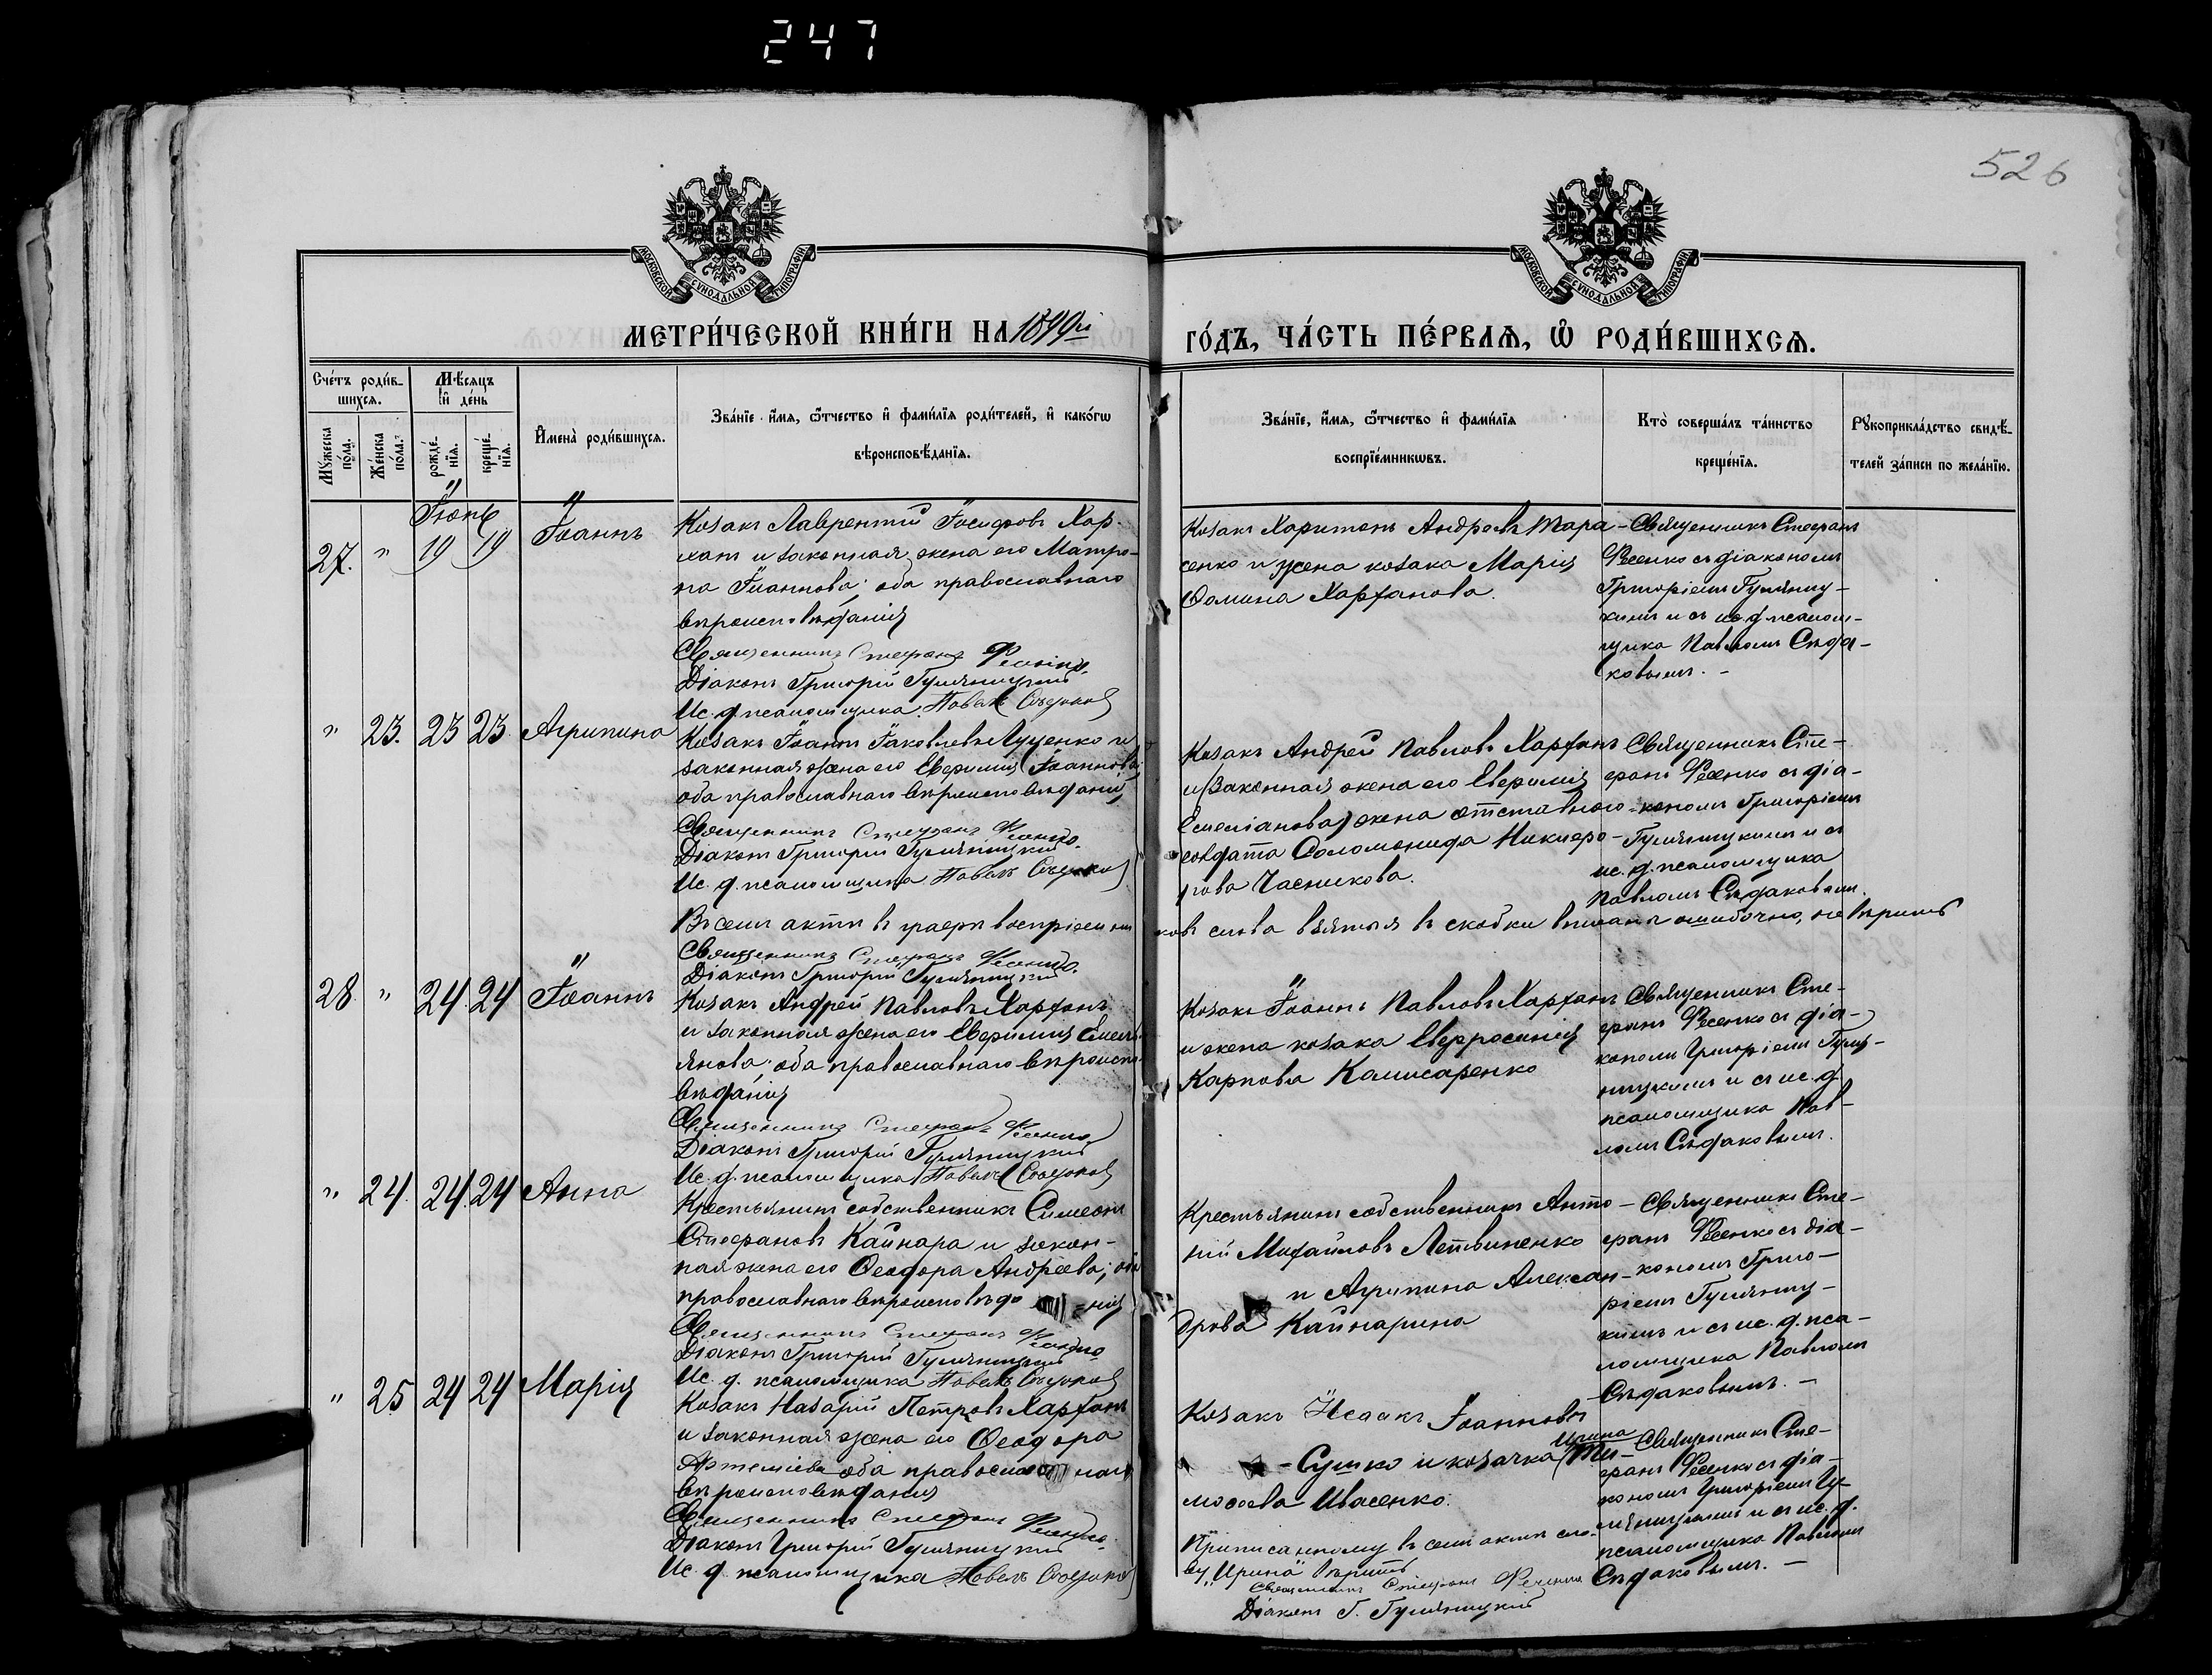 247
526
МОСКОВСКОЙ СѴНОДАЛЬНОЙ ТИПОГРАФІИ
МОСКОВСКОЙ СѴНОДАЛЬНОЙ ТИПОГРАФІИ
МЕТРИ́ЧЕСКОЙ КНИ́ГИ НА 1899й
ГО́ДЪ, ЧА́СТЬ ПЕ́РВАЯ, Ѽ РОДИ́ВШИХСЯ.
Сче́тъ роди́вшихся.
Мꙋ́жеска по́ла.
Же́нска по́ла.
Мѣ́сяцъ и҆ де́нь
рожде́нїя.
креще́нїя.
И҆мена̀ роди́вшихся.
Зва́нїе, и҆́мя, ѻ҆́тчество и҆ фами́лїя роди́телей, и҆ како́гѡ
вѣроисповѣ́данїя.
Зва́нїе, и҆́мя, ѻ҆́тчество и҆ фами́лїя
воспрїе́мникѡвъ.
Кто̀ соверша́лъ та́инство
креще́нїя.
Рꙋкоприкла́дство свидѣ́телей за́писи по жела́нїю.
Іюнь
27. " 19 19 Іоаннъ
Козакъ Лаврентій Іосифовъ Хар-
хатъ и законная жена его Матро-
на Іоаннова; оба православнаго
вѣроисповѣданія
Священникъ Стефанъ Фесенко
Діаконъ Григорій Гуляницкій
Ис. д. псаломщика Павелъ Сѣдаковъ
Козакъ Харитонъ Андреевъ Тара-
сенко и жена козака Марія
Фомина Харханова.
Священникъ Стефанъ
Фесенко съ діакономъ
Григоріемъ Гуляниц-
кимъ и съ ис. д. псалом-
щика Павломъ Сѣда-
ковымъ. -
" 23. 23 23 Агрипина
Козакъ Іоаннъ Іаковлевъ Луценко и
законная жена его Евфимія Іоаннова;
оба православнаго вѣроисповѣданія
Священникъ Стефанъ Фесенко.
Діаконъ Григорій Гуляницкій
Ис. д. псаломщика Павелъ Сѣдаковъ
Козакъ Андрей Павловъ Харханъ
и (законная жена его Евфимія
Емеліанова) жена отставного
солдата Соломонида Никифо-
рова Часникова.
Священникъ Сте-
фанъ Фесенко съ діа-
кономъ Григоріемъ
Гуляницкимъ и съ
ис. д. псаломщика
Павломъ Сѣдаковымъ.
Въ семъ актѣ въ графѣ воспріемниковъ слова взятыя въ скобки вписаны ошибочно, не вѣрить
Священникъ Стефанъ Фесенко.
Діаконъ Григорій Гуляницкій
28. " 24. 24 Іоаннъ
Козакъ Андрей Павловъ Харханъ
и законная жена его Евфимія Емель-
янова; оба православнаго вѣроиспо-
вѣданія
Священникъ Стефанъ Фесенко
Діаконъ Григорій Гуляницкій
Ис. д. псаломщика Павелъ Сѣдаковъ
Козакъ Іоаннъ Павловъ Харханъ
и жена козака Евфросинія
Карпова Комисаренко
Священникъ Сте-
фанъ Фесенко съ діа-
кономъ Григоріемъ Гуля-
ницкимъ и съ ис. д.
псаломщика Пав-
ломъ Сѣдаковымъ.
" 24. 24. 24 Анна
Крестьянинъ собственникъ Симеонъ
Стефановъ Кайнара и закон-
ная жена его Феодора Андреева; оба
православнаго вѣроисповѣда=нія
Священникъ Стефанъ Фесенко
Діаконъ Григорій Гуляницкій
Ис. д. псаломщика Павелъ Сѣдаковъ
Крестьянинъ собственникъ Анто-
ній Михайловъ Летвиненко
и Агрипина Алексан-
дрова Кайнарина
Священникъ Сте-
фанъ Фесенко съ діа-
кономъ Григо-
ріемъ Гуляниц-
кимъ и съ ис. д. пса-
ломщика Павломъ
Сѣдаковымъ. -
" 25 24 24 Марія
Козакъ Назарій Петровъ Харханъ
и законная жена его Феодора
Артеміева оба православнаго
вѣроисповѣданія
Священникъ Стефанъ Фесенко.
Діаконъ Григорій Гуляницкій
Ис. д. псаломщика Павелъ Сѣдаковъ
Козакъ Исаакъ Іоанновъ
Ирина
- Сушко и козачка Ти-
мофеева Ивасенко.
Приписанному въ семъ актѣ сло-
ву „Ирина" вѣрить
Священникъ Стефанъ Фесенко
Діаконъ Г. Гуляницкій
Священникъ Сте-
фанъ Фесенко съ діа-
кономъ Григоріемъ Гу-
ляницкимъ и съ ис. д.
псаломщика Павломъ
Сѣдаковымъ. -